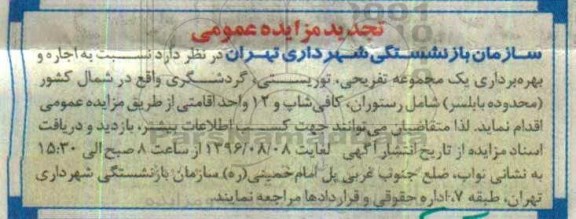 تجدید مزایده عمومی
سازمان بازنشستگی شهرداری تهران در نظر دارد نسبت به اجاره و
بهره‌برداری یک مجموعه تفریحی، توریستی، گردشگری واقع در شمال کشور
(محدوده بابلسر) شامل رستوران، کافی‌شاپ و ۱۲ واحد اقامتی از طریق مزایده عمومی
اقدام نماید. لذا متقاضیان می‌توانند جهت کسب اطلاعات بیشتر، بازدید و دریافت
اسناد مزایده از تاریخ انتشار آگهی لغایت ۱۳۹۶/۰۸/۰۸ از ساعت ۸ صبح الی ۱۵:۳۰
به نشانی نواب، ضلع جنوب غربی پل امام خمینی(ره) سازمان بازنشستگی شهرداری
تهران، طبقه ۷، اداره حقوقی و قراردادها مراجعه نمایند.